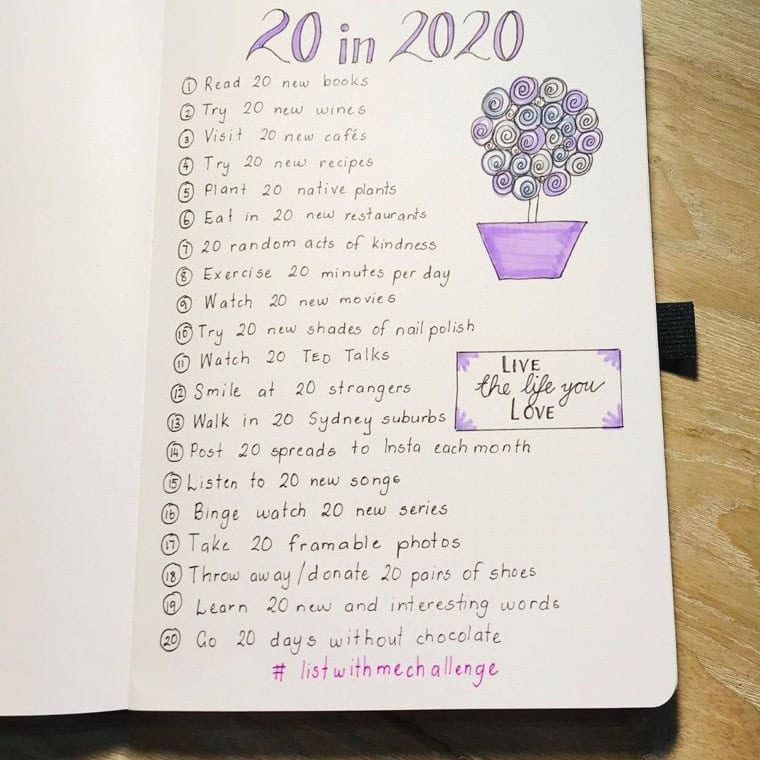 20 in 2020
1 Read 20 new books
2 Try 20 new wines
3 Visit 20 new cafés
4 Try 20 new recipes
5 Plant 20 native plants
6 Eat in 20 new restaurants
7 20 random acts of kindness
8 Exercise 20 minutes per day
9 Watch 20 new movies
10 Try 20 new shades of nail polish
11 Watch 20 TED Talks
12 Smile at 20 strangers
13 Walk in 20 Sydney suburbs
14 Post 20 spreads to Insta each month
15 Listen to 20 new songs
16 Binge watch 20 new series
17 Take 20 framable photos
18 Throw away/donate 20 pairs of shoes
19 Learn 20 new and interesting words
20 Go 20 days without chocolate
# listwithmechallenge
LIVE
the life you
LOVE